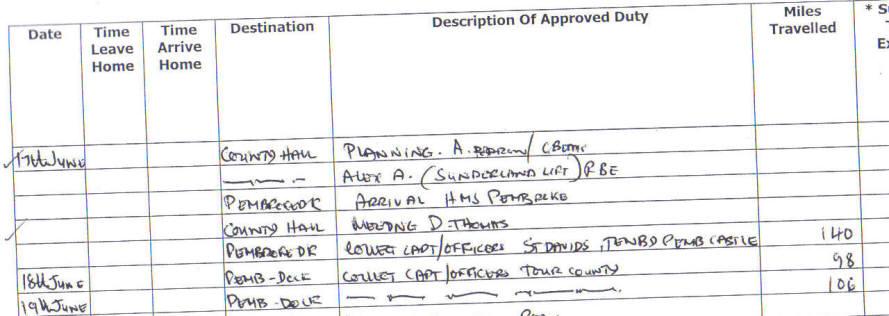 Date Time Leave Home Time Arrive Home Destination Description Of Approved Duty Miles Travelled * S
17th JUNE COUNTY HALL PLANNING. A.
ALEX A. (SUNDERLAND LIFT) PBE
PEMBROKE DK ARRIVAL HMS PEMBROKE
COUNTY HALL MEETING D. THOMAS
PEMBROKE DK COLLECT CAPT/OFFICERS ST DAVIDS, TENBY PEMB CASTLE 140
18th JUNE PEMB-DOCK COLLECT CAPT/OFFICERS TOUR COUNTY 98
19th JUNE PEMB-DOCK 106